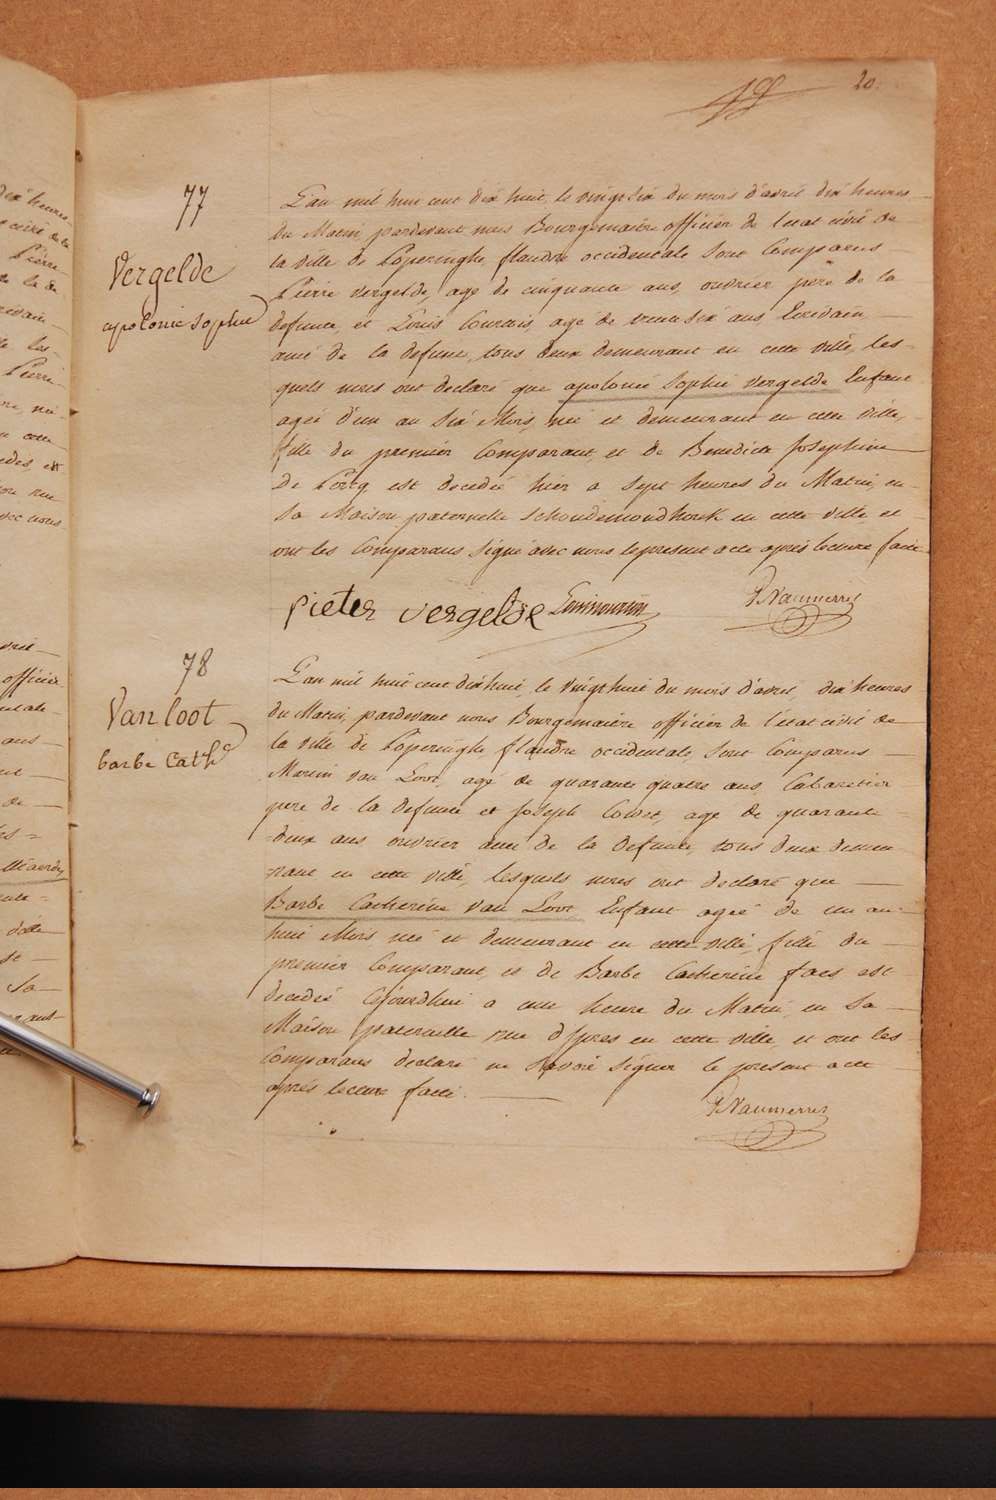 20.
77
Vergelde
apolonie Sophie
L'an mil huit cent dix huit, le vingt six du mois d'avril dix heures
du Matin, pardevant nous Bourgemaitre officier de l'etat civil de
la ville de Poperinghe, flandre occidentale sont Comparus
Pierre vergelde, agé de cinquante ans, ouvrier pere de la
defunte, et Louis Courtois, agé de trente six ans, Ecrivain
ami de la defunte, tous deux demeurant en cette ville, les-
quels nous ont declaré que apolonie Sophie vergelde Enfant
ageé d'un an six Mois, neé et demeurant en cette ville,
fille du premier Comparant, et de Benedicte Josephine
De Porcq, est decedeé hier a sept heures du Matin, en
sa Maison paternelle Schoudemondhouk en cette ville et
ont les Comparans signé avec nous le present acte aprés lecture faite
pieter vergelde
78
Van loot
barbe Cathe
L'an mil huit cent dix huit, le vingt huit du mois d'avril dix heures
du Matin, pardevant nous Bourgemaitre officier de l'état civil de
la ville de Poperinghe, flandre occidentale, sont Comparus
Martin Van Loot, agé de quarante quatre ans, Cabaretier
pere de la defunte et Joseph agé de quarante
deux ans ouvrier ami de la defunte, tous deux demeu
rant en cette ville, lesquels nous ont declaré que
Barbe Catherine Van Loot, Enfant ageé de un an
huit Mois neé et demeurant en cette ville, fille du
premier Comparant et de Barbe Catherine faes est
decedeé a une heure du Matin, en sa
Maison paternelle rue d'Ypres en cette ville et ont les
Comparans declaré ne savoir signer le present acte
aprés lecture faite.